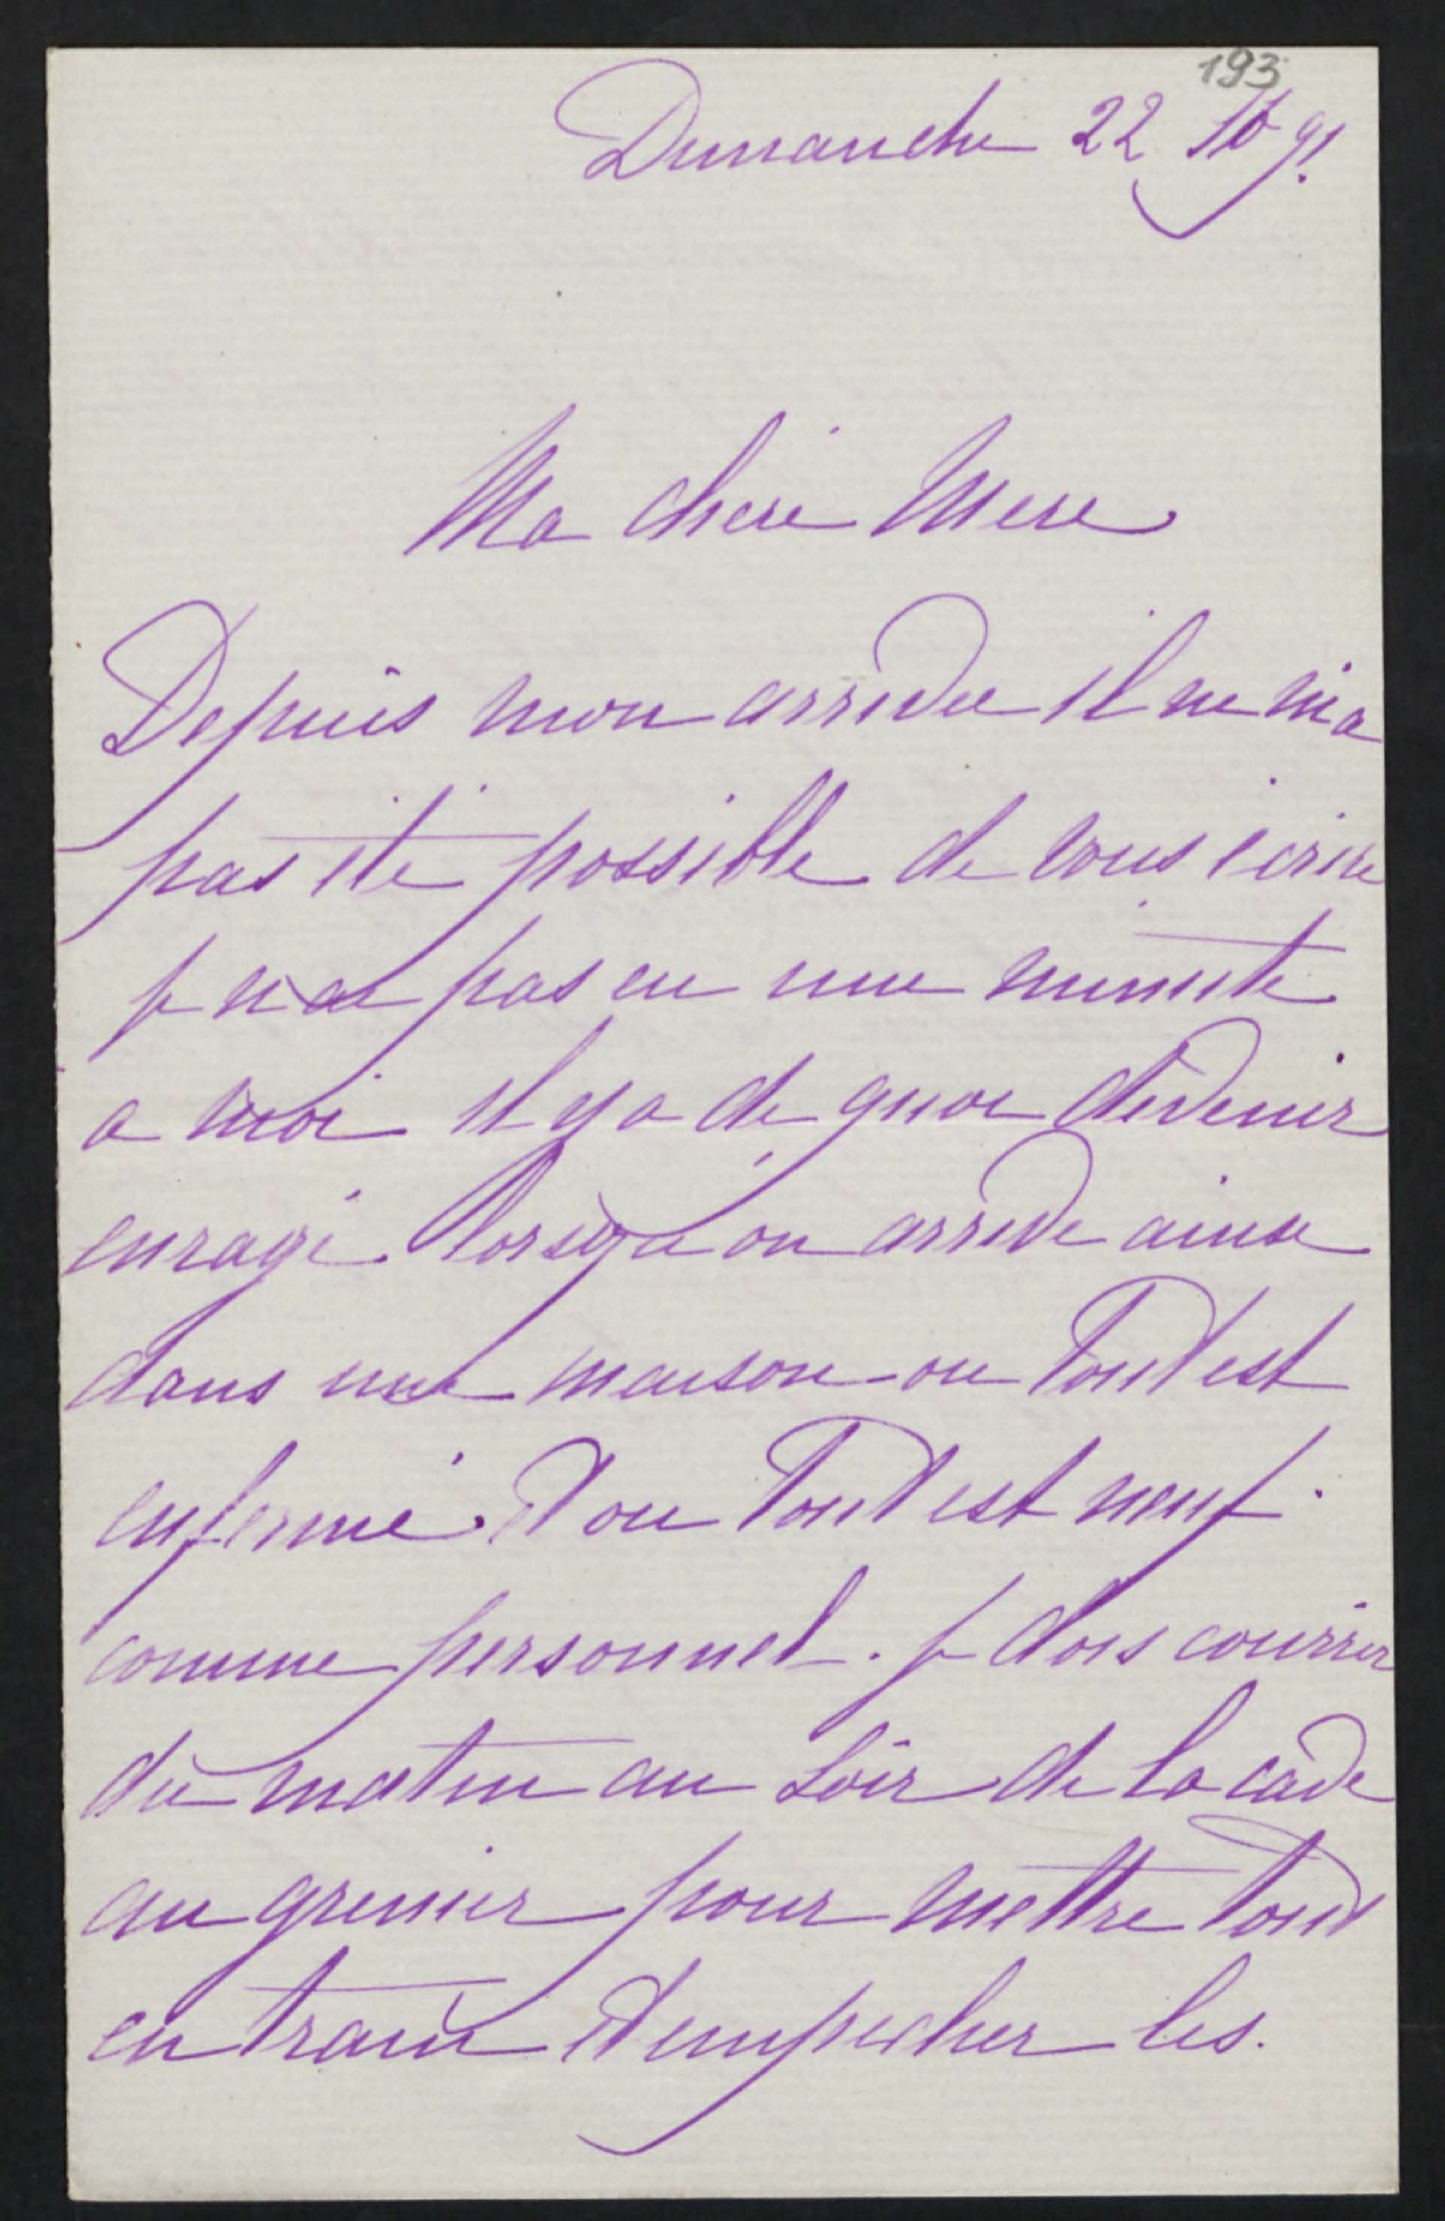 193
Dimanche 22 91.
Ma chere Mere
Depuis mon arrivée il ne m'a
pas été possible de vous écrire
je n'ai pas eu une minute
a moi il y a de quoi devenir
enragé lorsqu'on arrive ainsi
dans une maison ou tout est
enfermé et ou tout est neuf
comme personnel. je dois courrir
du matin au soir de la cave
au grenier pour mettre tout
en train et empecher les.